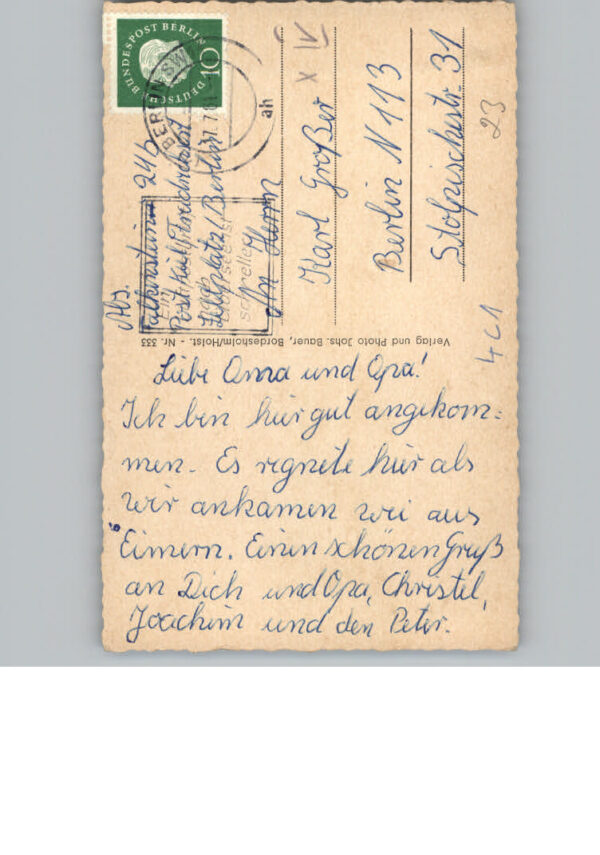 DEUTSCHE BUNDESPOST BERLIN
10
BERLIN SW
ah
X IV
Abs.
24b
Lillplatz/Berlin
An Herrn
Karl Großer
Berlin N 113
Stolpischestr. 31
23
4C1
Verlag und Photo Johs. Bauer, Bordesholm/Holst. - Nr. 333
Liebe Oma und Opa!
Ich bin hier gut angekom=
men. Es regnete hier als
wir ankamen wei aus
Eimern. Einen schönen Gruß
an Dich und Opa, Christel,
Joachim und den Peter.